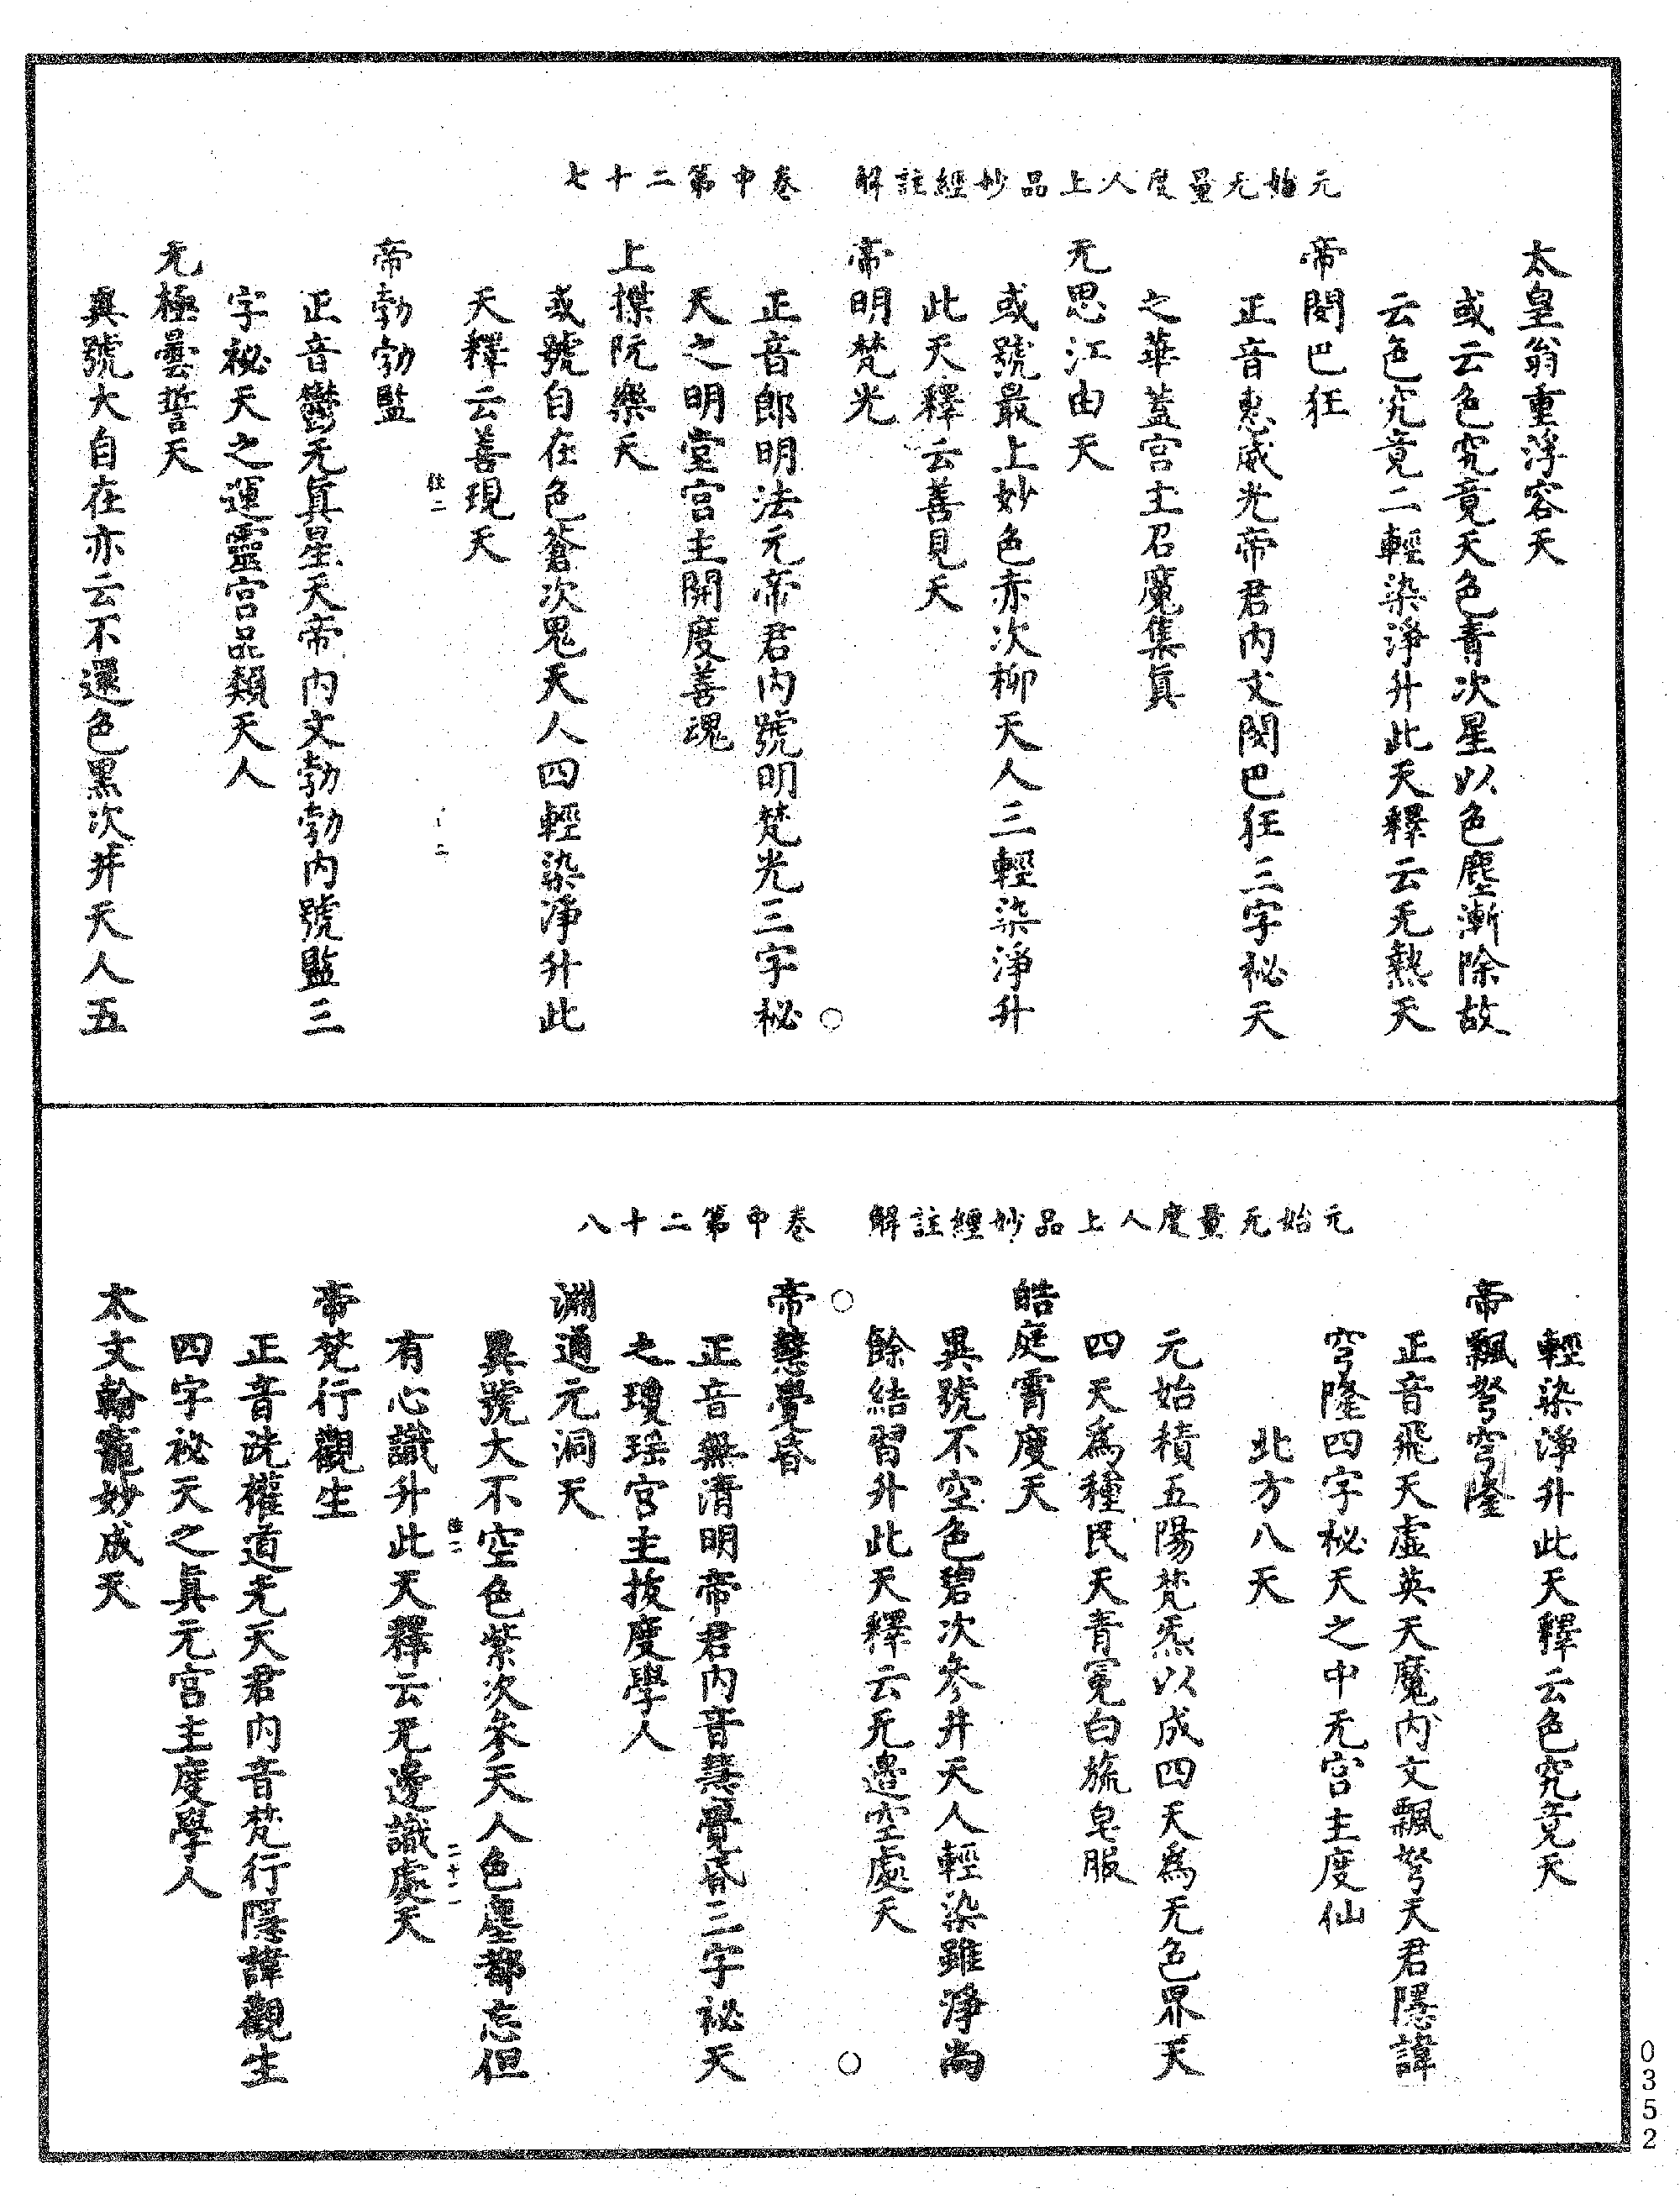 元始无量度人上品妙經註解　卷中第二十七
太皇翁重浮容天
或云色究竟天色青次星以色塵漸除故
云色究竟二輕染淨升此天釋云无熱天
帝閔巴狂
正音惠威光帝君内文閔巴狂三字秘天
之華蓋宫主召魔集眞
无思江由天
或號最上妙色赤次柳天人三輕染淨升
此天釋云善見天
帝明梵光
正音郎明法元帝君内號明梵光三字秘
天之明堂宫主開度善魂
上揲阮樂天
或號自在色蒼次鬼天人四輕染淨升此
天釋云善現天
帝勃勃監
正音鬱无眞星天帝内文勃勃内號監三
字祕天之運靈宫品類天人
无極曇誓天
異號大自在亦云不還色黑次井天人五
元始无量度人上品妙經註解　卷中第二十八
輕染淨升此天釋云色究竟天
帝飄弩穹隆
正音飛天虚英天魔内文飄弩天君隱諱
穹隆四字秘天之中无宫主度仙
北方八天
元始積五陽梵炁以成四天爲无色界天
四天爲種民天青冕白旒皂服
皓庭霄度天
異號不空色碧次參井天人輕染雖淨尚
餘結習升此天釋云无邉空處天
帝慧覺昏
正音無清明帝君内音慧覺昏三字祕天
之瓊瑶宫主拔度學人
淵通元洞天
異號大不空色紫次參天人色塵都忘但
有心識升此天釋云无邊識處天
帝梵行觀生
正音詵權道无天君内音梵行隱諱觀生
四字祕天之眞元宫主度學人
太文翰寵妙成天
0352